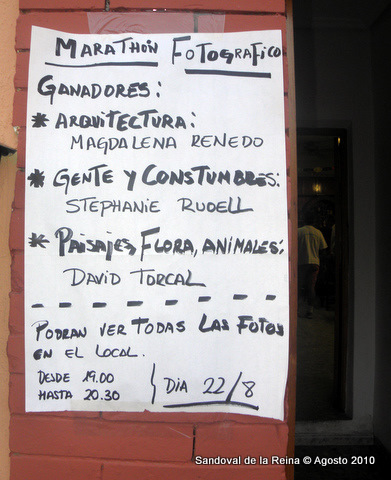 MARATHON FOTOGRAFICO
GANADORES:
* ARQUITECTURA:
MAGDALENA RENEDO
* GENTE Y CONSTUMBRES:
STEPHANIE RUDELL
* PAISAJES, FLORA, ANIMALES:
DAVID TORCAL
PODRAN VER TODAS LAS FOTOS
EN EL LOCAL.
DESDE 19.00
HASTA 20.30
DIA 22/8
Sandoval de la Reina © Agosto 2010